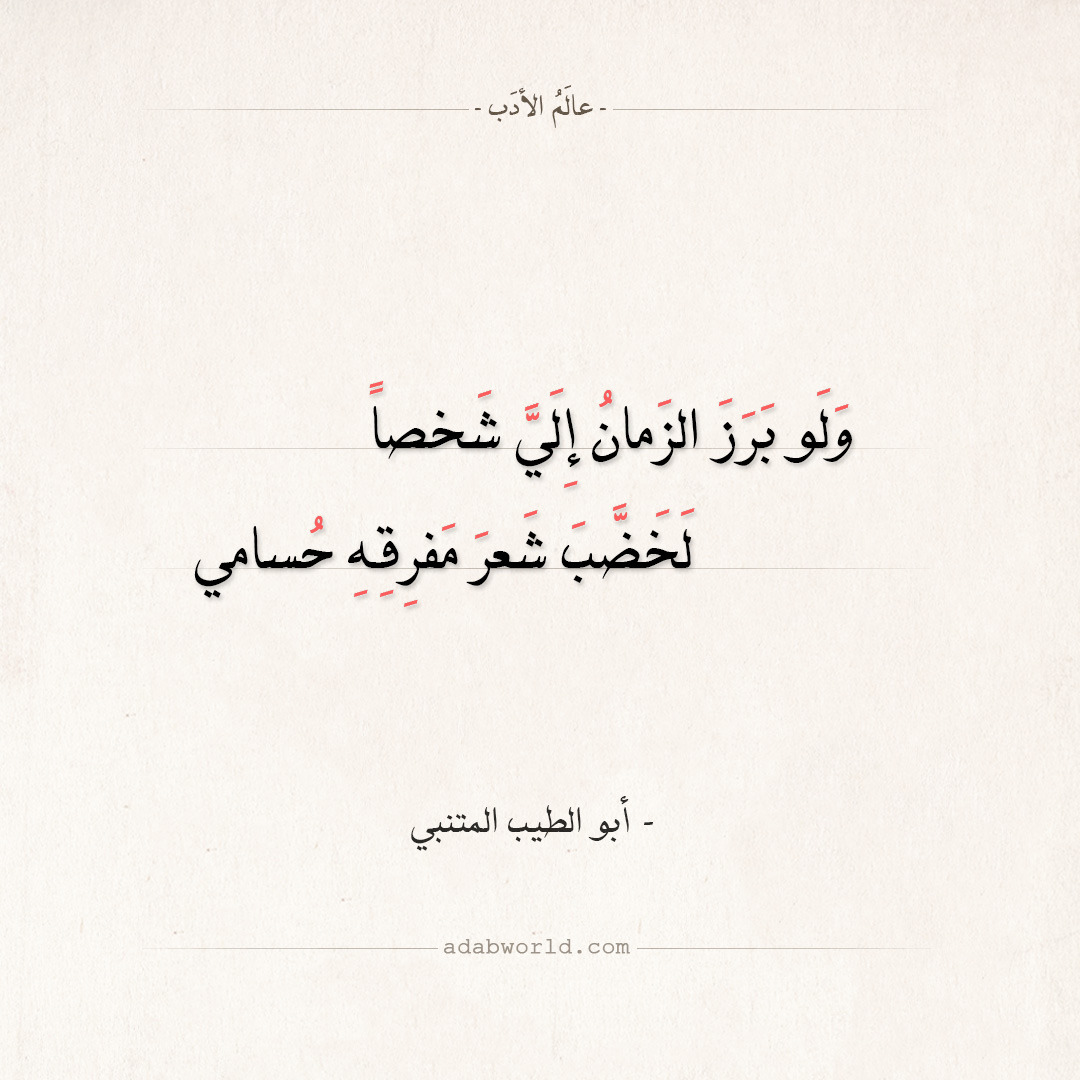 - عالَمُ الأدَب -
وَلَو بَرَزَ الزَمانُ إِلَيَّ شَخصاً
لَخَضَّبَ شَعرَ مَفرِقِهِ حُسامي
- أبو الطيب المتنبي
adabworld.com